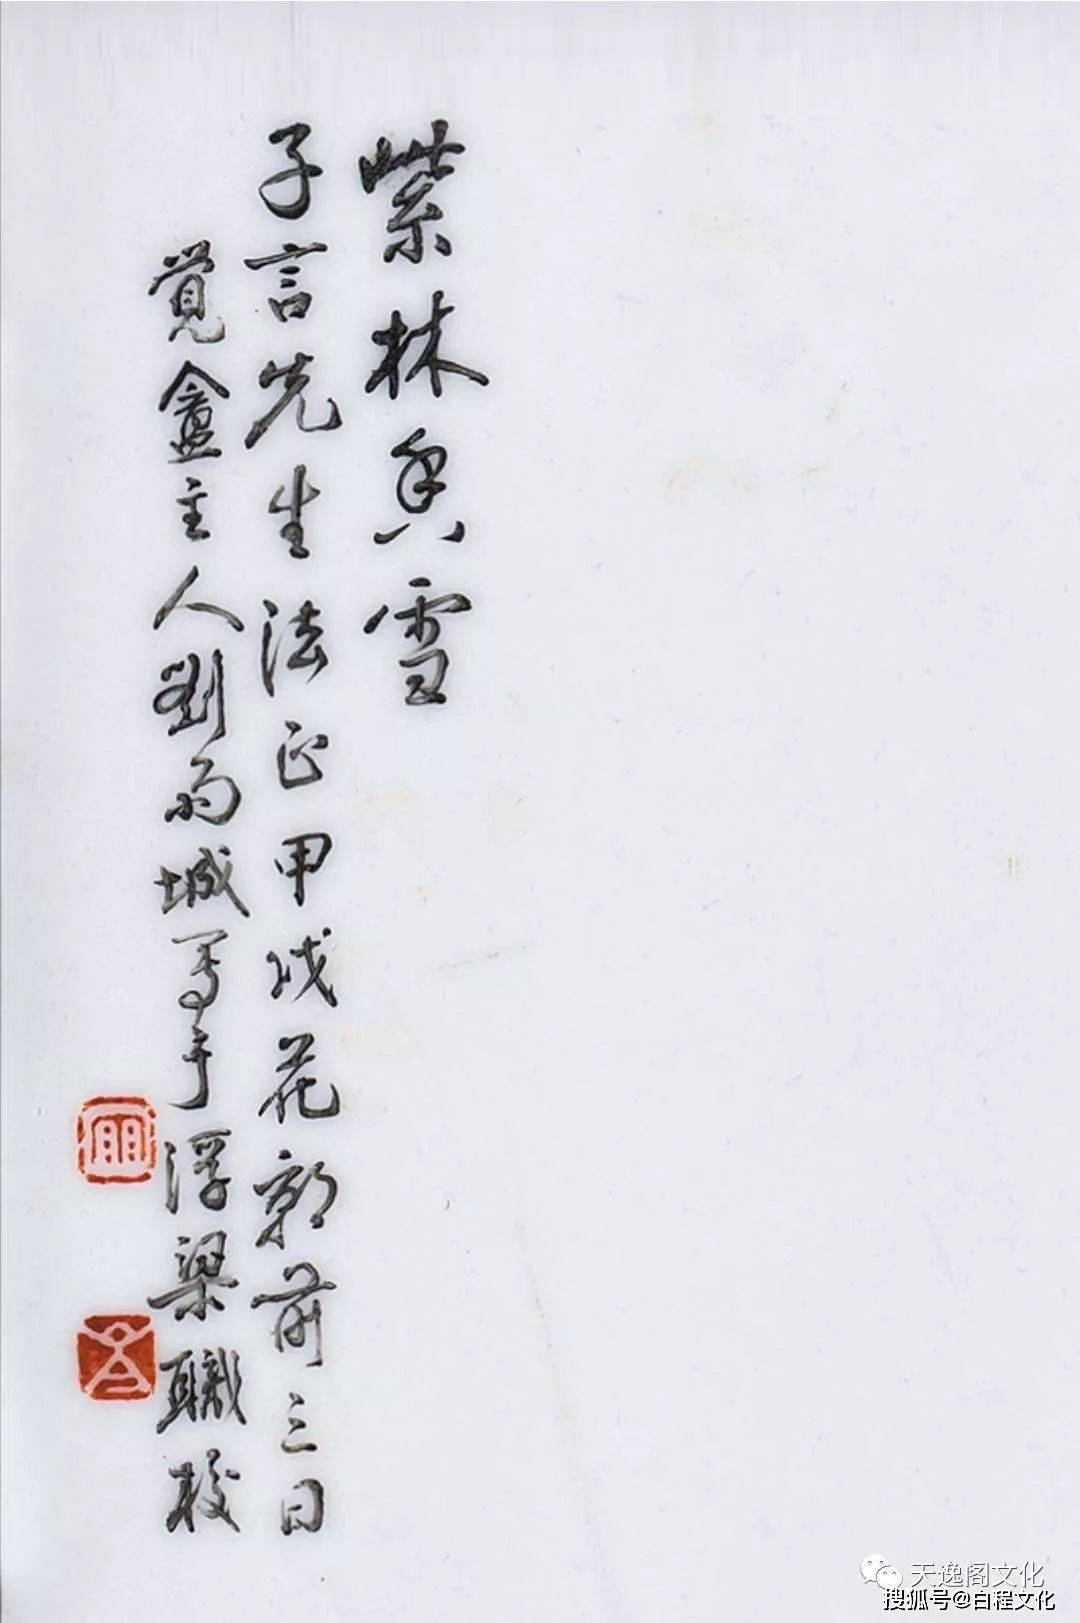 紫林香雪
子言先生法正甲戌花郭前三日
覺盦主人劉雨城写于浮梁職校
雨
天逸阁文化
搜狐号@白程文化